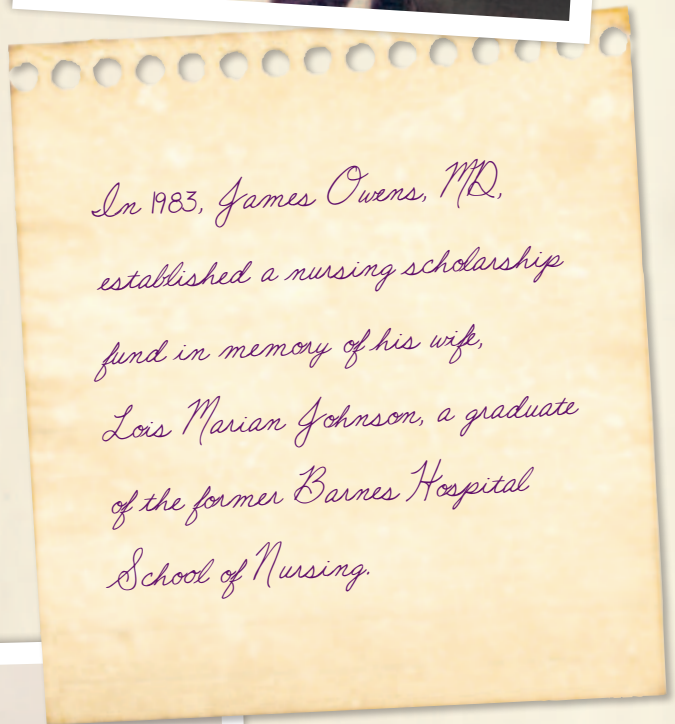 In 1983, James Owens, MD,
established a nursing scholarship
fund in memory of his wife,
Lois Marian Johnson, a graduate
of the former Barnes Hospital
School of Nursing.